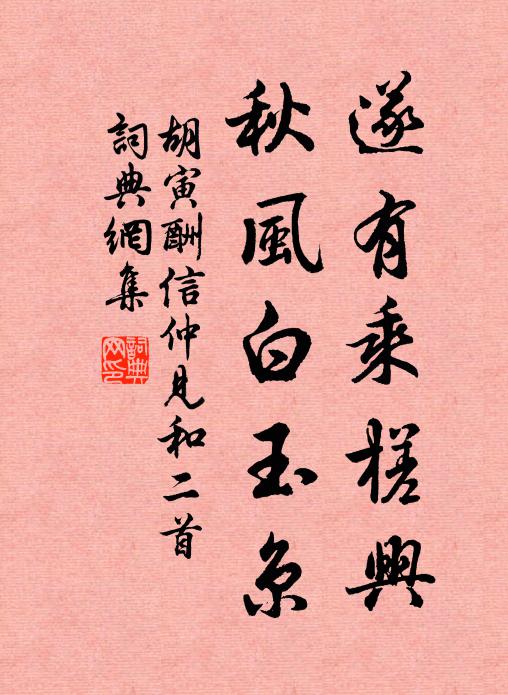 遂有乘槎興
秋風白玉京
胡寅酬信仲見和二首
詞典網集
詞典网印